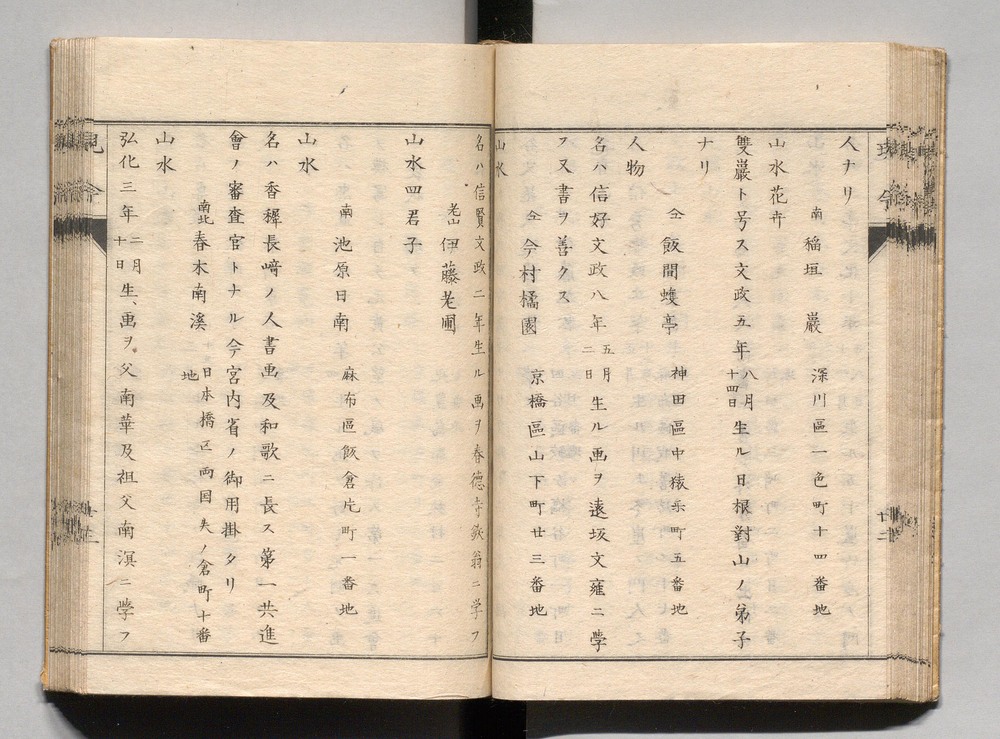 人ナリ
南 稲垣 巌 深川區一色町十四番地
山水花卉
雙巌ト号ス文政五年八月十四日生ル日根對山ノ弟子
ナリ
仝 飯間 亭 神田區中猿楽町五番地
人物
名ハ信好文政八年五月二日生ル画ヲ遠坂文雍ニ學
ス又書ヲ善クス
仝 今村橘園 京橋區山下町廿三番地
山水
名ハ信賢文政二年生ル画ヲ春徳寺鉄翁ニ学フ
老山 伊藤老圃
山水四君子
南 池原日南 麻布區飯倉片町一番地
山水
名ハ香穉長﨑ノ人書画及和歌ニ長ス第一共進
會ノ審査官トナル今宮内省ノ御用掛タリ
南北 春木南溪 日本橋区両国矢ノ倉町十番地
山水
弘化三年二月十日生、画ヲ父南華及祖父南溟ニ學フ